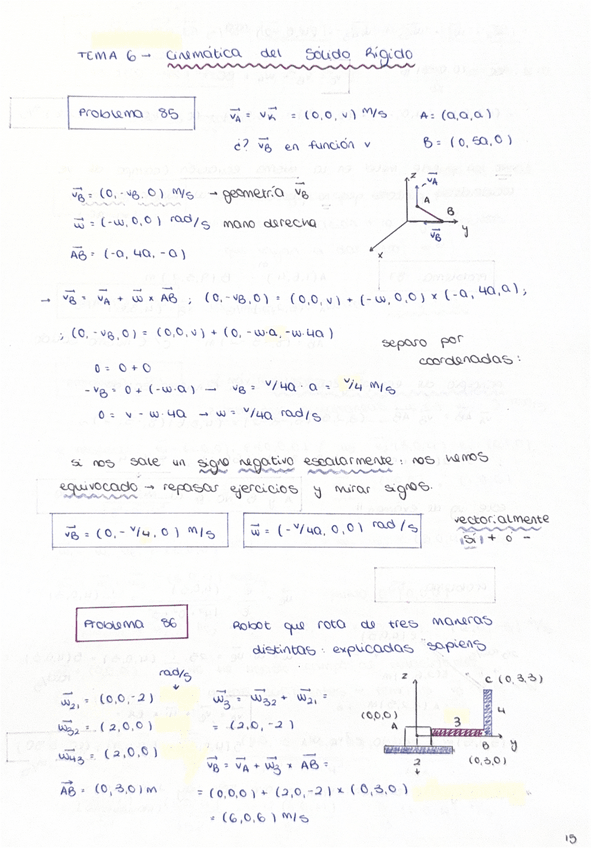 TEMA 6 → Cinemática del Sólido Rígido
Problema 85
v⃗A = vk⃗ = (0,0,v) m/s   A = (a,a,a)
¿? v⃗B en función v   B = (0,5a,0)
v⃗B = (0,-vB,0) m/s → geometría v⃗B
w⃗ = (-w,0,0) rad/s mano derecha
AB⃗ = (-a, 4a, -a)
z
v⃗A
A
B
y
v⃗B
x
→ v⃗B = v⃗A + w⃗ × AB⃗ ; (0,-vB,0) = (0,0,v) + (-w,0,0) × (-a, 4a, a) ;
; (0,-vB,0) = (0,0,v) + (0,-w·a,-w·4a)
separo por
coordenadas:
0 = 0 + 0
-vB = 0 + (-w·a) → vB = v/4a · a = v/4 m/s
0 = v - w·4a → w = v/4a rad/s
si nos sale un signo negativo escalarmente: nos hemos
equivocado → repasar ejercicios y mirar signos.
v⃗B = (0,-v/4,0) m/s
w⃗ = (-v/4a, 0,0) rad/s
vectorialmente
¡sí! + o -
Problema 86
Robot que rota de tres maneras
distintas: explicadas "sapiens
rad/s
w⃗21 = (0,0,-2)
w⃗32 = (2,0,0)
w⃗43 = (2,0,0)
AB⃗ = (0,3,0) m
w⃗3 = w⃗32 + w⃗21 =
= (2,0,-2)
v⃗B = v⃗A + w⃗3 × AB⃗ =
= (0,0,0) + (2,0,-2) × (0,3,0)
= (6,0,6) m/s
z
C (0,3,3)
(0,0,0)
A
3
4
B
y
2
(0,3,0)
19